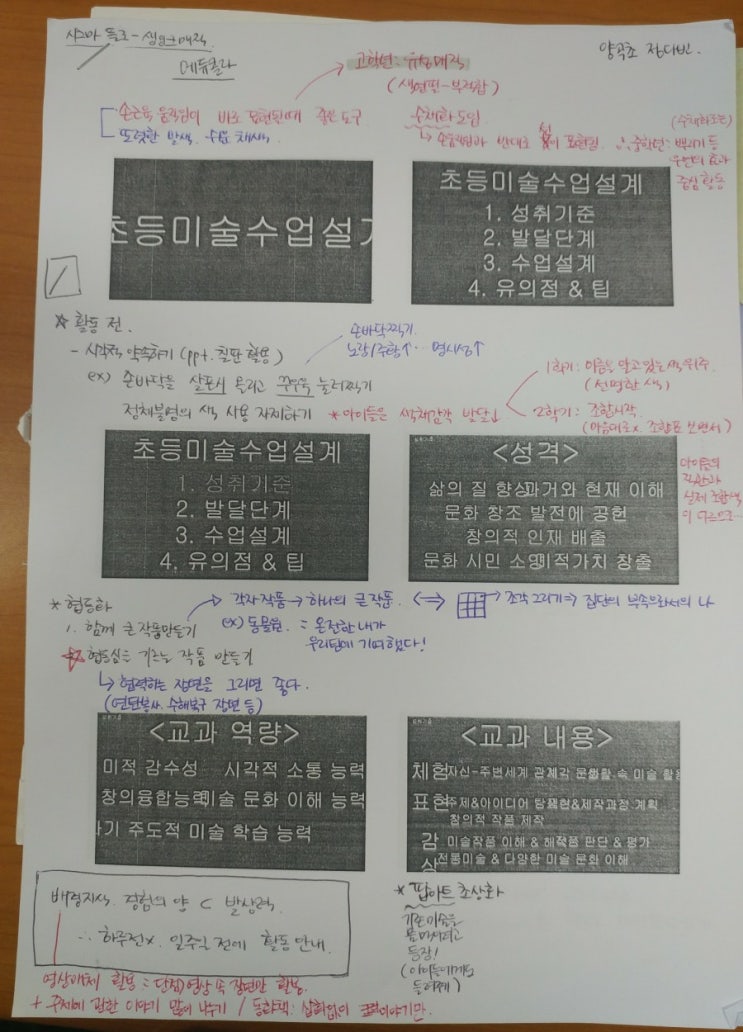 에듀콜라
양곡초 정다빈.
고학년: 유성매직
(색연필-부적합)
손근육 움직임이 바로 표현된다 때 좋은 도구
또렷한 발색. 수업 채색
수채화 도입
(수채화도구)
손움직임과 반대로 표현됨. ∴ 중학년: 뿌리기 등
우연의 효과
중심 활동
초등미술수업설계
초등미술수업설계
1. 성취기준
2. 발달단계
3. 수업설계
4. 유의점 & 팁
☆ 활동 전.
- 시각적 약속하기 (ppt. 칠판 활용)
손바닥찍기.
노랑/주황↑… 명시성↑
ex) 손바닥을 살포시 올리고 꾸우욱 눌러찍기
정체불명의 색 사용 자제하기
* 아이들은 색채감각 발달됨
1학기: 이름을 알고 있는 색 위주.
(선명한 색)
2학기: 조합시작.
(마음대로x. 조합표 보면서)
초등미술수업설계
1. 성취기준
2. 발달단계
3. 수업설계
4. 유의점 & 팁
<성격>
삶의 질 향상 과거와 현재 이해
문화 창조 발전에 공헌
창의적 인재 배출
문화 시민 소양 미적가치 창출
아이들의
직관과
실제 조합색
이 다르므로…
* 협동화
1. 함께 큰 작품만들기
각자 작품 → 하나의 큰 작품.
ex) 동물원. : 온전한 내가
우리팀에 기여했다!
⇔ 조각그리기 ⇒ 집단의 부속으로서의 나
협동심을 기르는 작품 만들기
↳ 협력하는 장면을 그리면 좋다.
(연탄봉사. 수해복구 장면 등)
<교과 역량>
미적 감수성 시각적 소통 능력
창의융합능력 미술 문화 이해 능력
자기 주도적 미술 학습 능력
<교과 내용>
체험 자신-주변세계 관계 문화 속 미술 활용
표현 주제&아이디어 탐색 표현&제작과정 계획
창의적 작품 제작
감상 미술작품 이해 & 해석 작품 판단 & 평가
전통미술 & 다양한 미술 문화 이해
배경지식. 경험의 양 ⊂ 발상력.
∴ 하루전x. 일주일 전에 활동 안내.
* 팝아트 초상화
기존미술을
등장!
(아이들에게도
들려주기)
영상매체 활용 : 단점) 영상 속 장면만 활용.
+ 주제에 관한 이야기 많이 나누기 / 동화책: 삽화없이 이야기만.